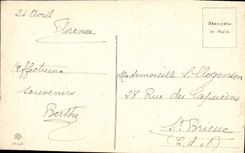 24 Avril
Florence
Affectueux
souvenirs
Berthe
Stampato
in Italia
Mademoiselle S. Mogenson
28 Rue des Capucins
St Brieuc
(C. d. N.)